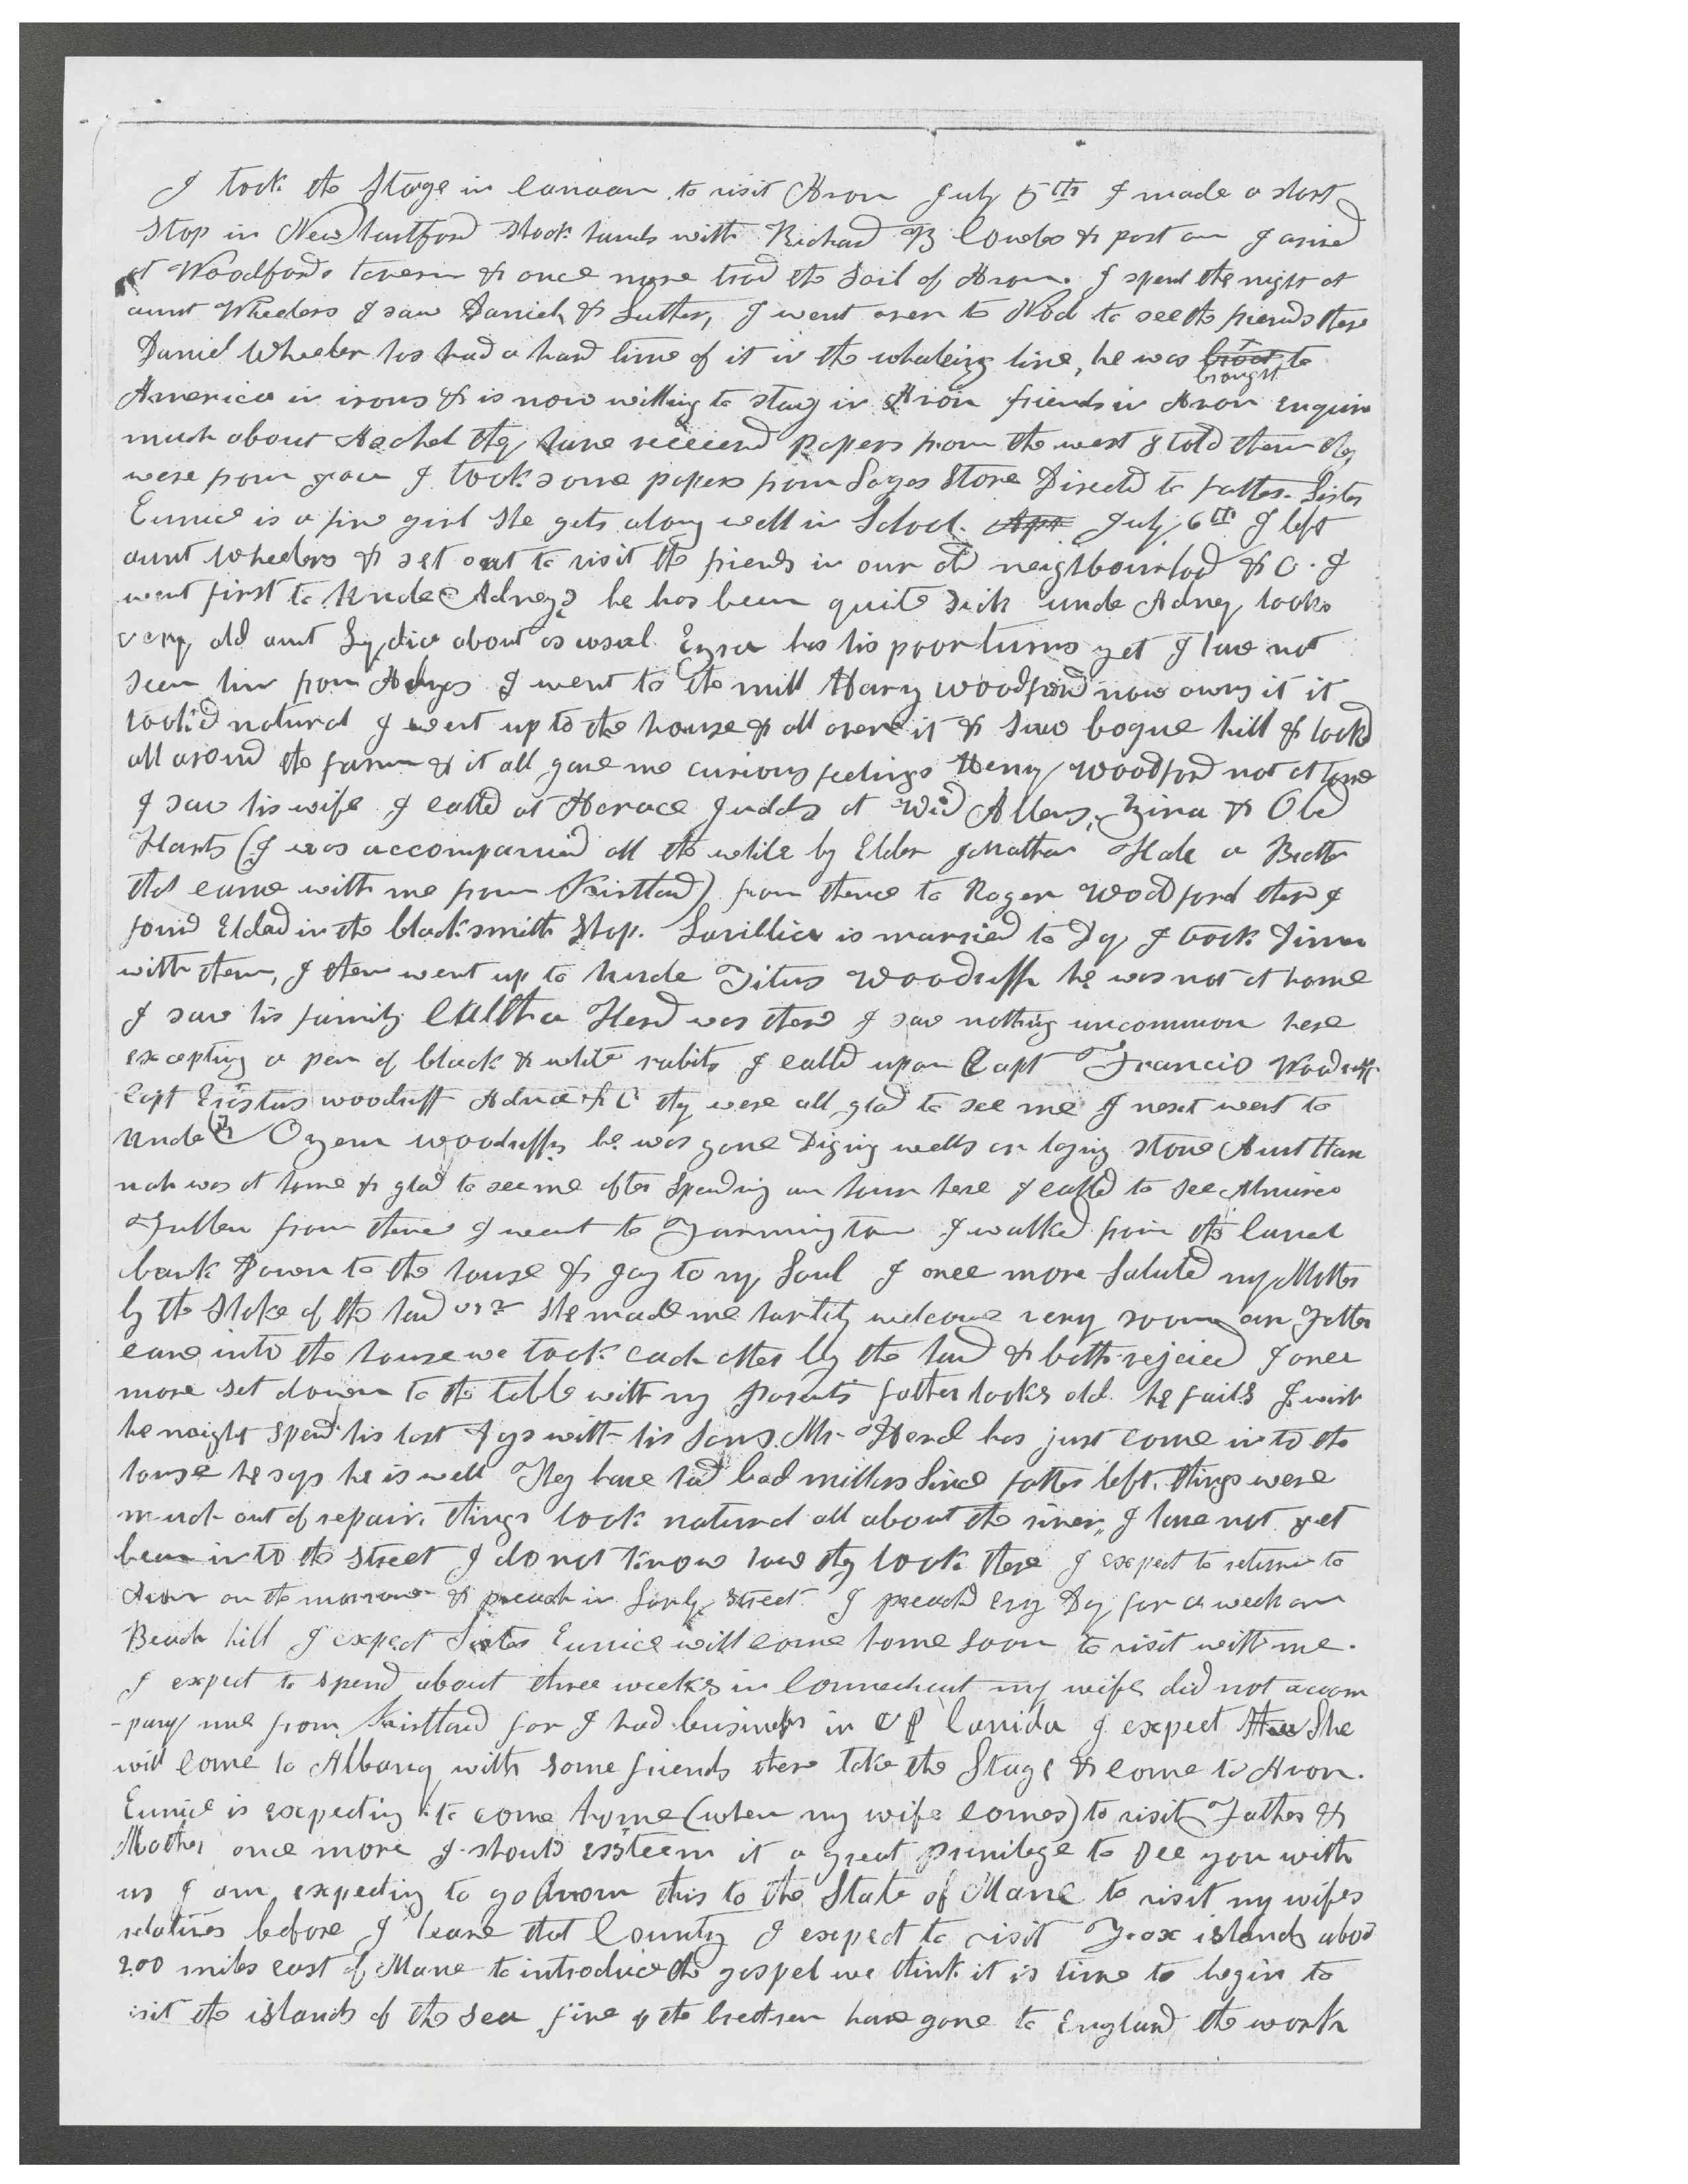 I took the Stage in Canaan to visit Avon July 5th I made a short
stop in New hartford shook hands with Richard B Cowles & past on I arived
at Woodfords tavern & once more trod the Soil of Avon. I spent the night at
aunt Wheelers I saw Daniel & Luther, I went over to Nod to see the friends there
Daniel Wheeler has had a hard time of it in the whaleing line, he was brought to
America in irons & is now willing to stay in Avon friends in Avon enquire
much about Aschel they have receieved papers from the west I told them they
were from you I took some papers from Sages Store Directed to father. Sister
Eunice is a fine girl she gets along well in School. Apr July 6th I left
aunt Wheelers & set out to visit the friends in our old neighbourhood &c. I
went first to Uncle Adneys he has been quite sick uncle Adney looks
very old aunt Lydia about as usual. Ezra has his poor turns yet I have not
seen him from Adneys I went to the mill Harry Woodford now owns it it
look'd natural I went up to the house & all over it & saw bogue hill & lookd
all around the farm & it all gave me curious feelings Henry Woodford not at home
I saw his wife I calld at Horace Judds at Wid Allens, Zina & Obed
Harts (I was accompanied all the while by Elder Jonathan Hale a Brother
that came with me from Kirtland) from thence to Roger Woodford there I
found Eldad in the blacksmith Shop. Savillia is married to Day I took Dinner
with them, I then went up to Uncle Titus Woodruff he was not at home
I saw his family Calltha Herd was there I saw nothing uncommon here
excepting a pen of black & white rabits I calld upon Capt Francis Woodruff
Capt Erastus woodruff Adna &c they were all glad to see me I next went to
Uncle Ozem woodruffs he was gone Diging wells or laying stone Aunt Han
nah was at home & glad to see me after spending an hour here I calld to see Almira
Fuller from there I went to Farmington I walked from the Canal
bank Down to the house & joy to my Soul I once more Saluted my Mother
by the shake of the hand she made me hartily welcome very soon on Father
came into the house we took each other by the hand & both rejoiced I once
more set down to the table with my parents father looks old. he fails I wish
he might spend his last days with his Sons. Mr. Herd has just come into the
house he says he is well They have had bad millers Since father left. things were
much out of repair. things look natural all about the river, I have not yet
been into the street I do not know how they look there I expect to return to
Avon on the morrow & preach in Lovly Street. I preachd evry Day for a week on
Beach hill I expect Sister Eunice will come home soon to visit with me.
I expect to spend about three weeks in Connecticut my wife did not accom
-pany me from Kirtland for I had business in UP Canida I expect She
will come to Albany with some friends there take the Stage & come to Avon.
Eunice is expecting to come home (when my wife comes) to visit Father &
Mother once more I should essteem it a great privilege to See you with
us I am expecting to go from this to the State of Mane to visit my wifes
relatives before I leave that County I expect to visit Fox islands about
200 miles east of Mane to introduce the gospel we think it is time to begin to
visit the islands of the Sea five of the brethren have gone to England the work